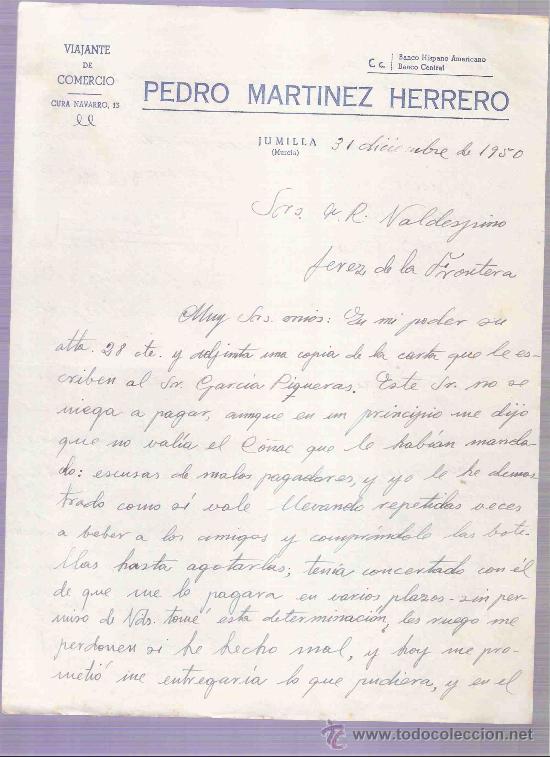 VIAJANTE
DE
COMERCIO
CURA NAVARRO, 13
C c. Banco Hispano Americano
Banco Central
PEDRO MARTINEZ HERRERO
JUMILLA
(Murcia)
31 diciembre de 1950
Srs. A. R. Valdespino
Jerez de la Frontera
Muy Srs. mios: En mi poder su
atta. 28 cte. y adjinta una copia de la carta que le es-
criben al Sr. García Piqueras. Este Sr. no se
niega a pagar, aunque en un principio me dijo
que no valía el Coñac que le habían manda-
do: escusas de malos pagadores, y yo le he demos
trado como sí vale llevando repetidas veces
a beber a los amigos y comprándole las bote-
llas hasta agotarlas; tenía concertado con él
de que me lo pagara en varios plazos - sin per-
miso de Vds. tomé esta determinación, les ruego me
perdonen si he hecho mal, y hoy me pro-
metió me entregaría lo que pudiera, y en el
todocoleccion.net